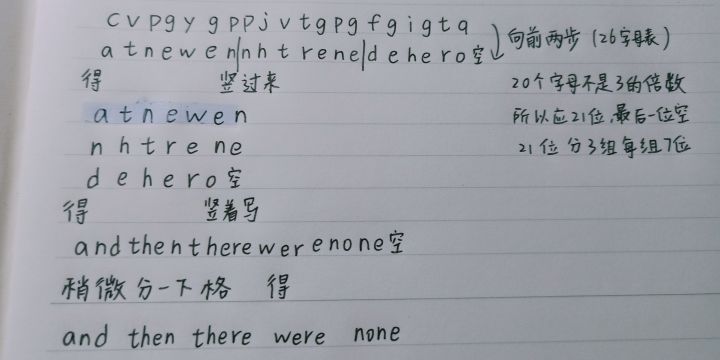 cvpgygppjvtgpgfgigtq
atnewen|nhtrene|dehero空 向前两步(26字母表)
得 竖过来 20个字母不是3的倍数
atnewen 所以应21位,最后一位空
nhtrene 21位 分3组每组7位
dehero空
得 竖着写
andthentherewerenone空
稍微分一下格 得
and then there were none